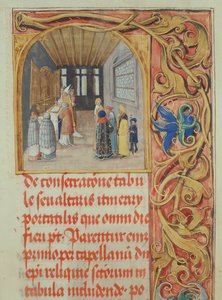 de consecratione tabu
le seu altaris itinerarii
portatilis que omni die
fieri pt. Parentur em
primo pe capellanū dn̄i
epi reliquie sctorum in
tabula includende po